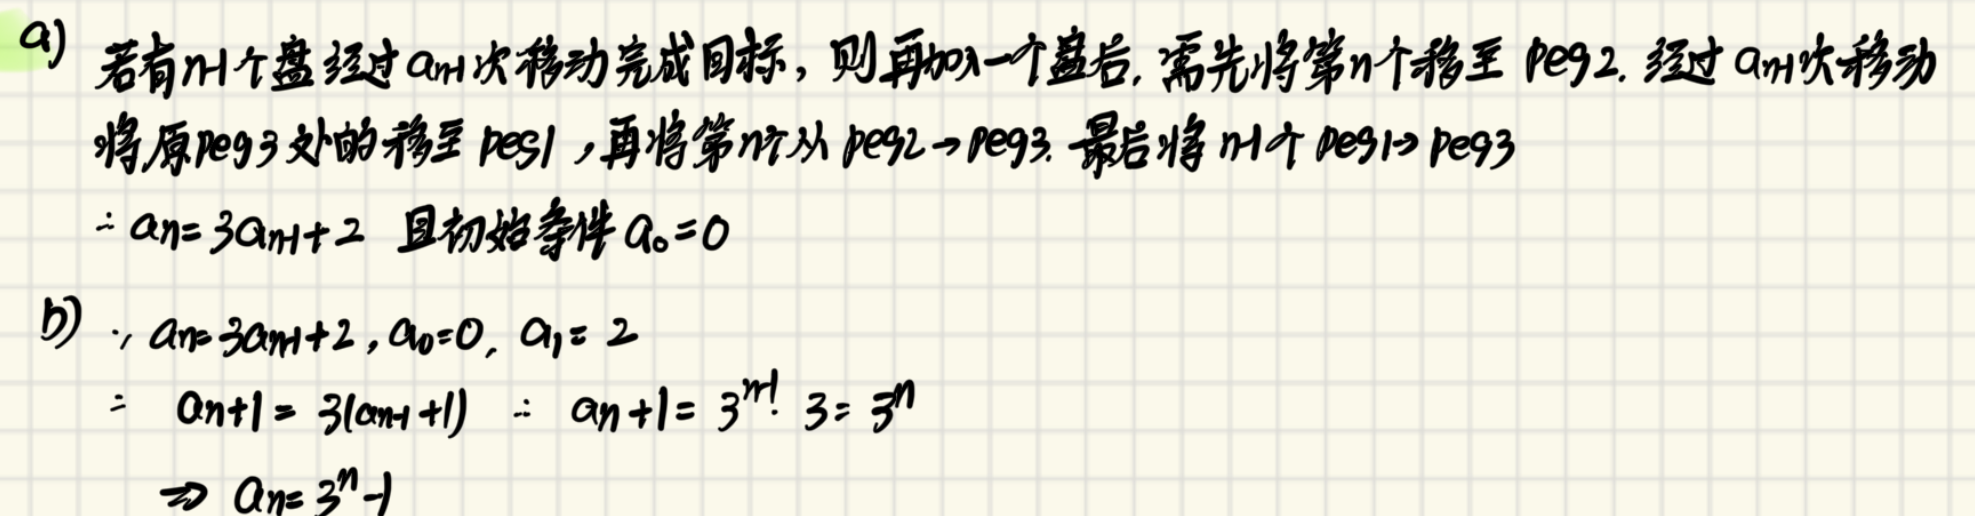 a) 若有n-1个盘经过an-1次移动完成目标，则再加入一个盘后，需先将第n个移至 peg2. 经过 an-1次移动
将原peg3处的移至 peg1，再将第n个从 peg2→peg3. 最后将 n-1个 peg1→peg3
∴ an=3an-1+2 且初始条件 a₀=0
b) ∵ an=3an-1+2, a₀=0, a₁=2
∴ an+1=3(an-1+1) ∴ an+1=3ⁿ⁻¹·3=3ⁿ
⇒ an=3ⁿ-1